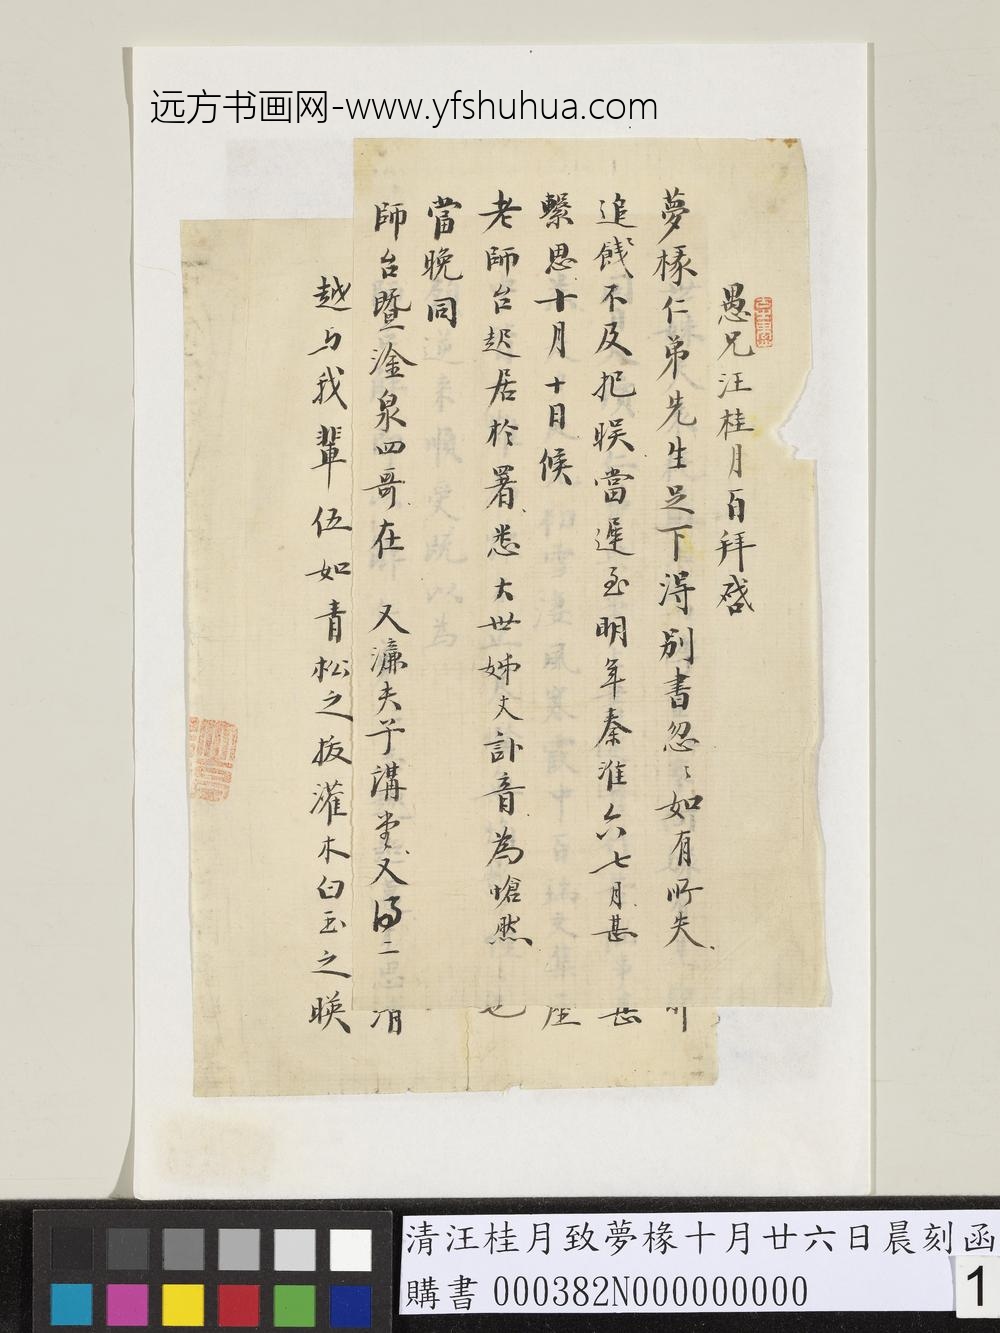 远方书画网-www.yfshuhua.com
愚兄汪桂月百拜啓
夢椽仁弟先生足下得別書忽〻如有所失
追餞不及抱悵當遲至明年秦淮六七月甚
繫思十月十日候
老師台起居於署悉大世姊丈訃音為愴然
當晚同
師台暨淦泉四哥在 又濂夫子講堂又得二
越与我輩伍如青松之拔灌木白玉之暎
清汪桂月致夢椽十月廿六日晨刻函
購書 000382N000000000
1